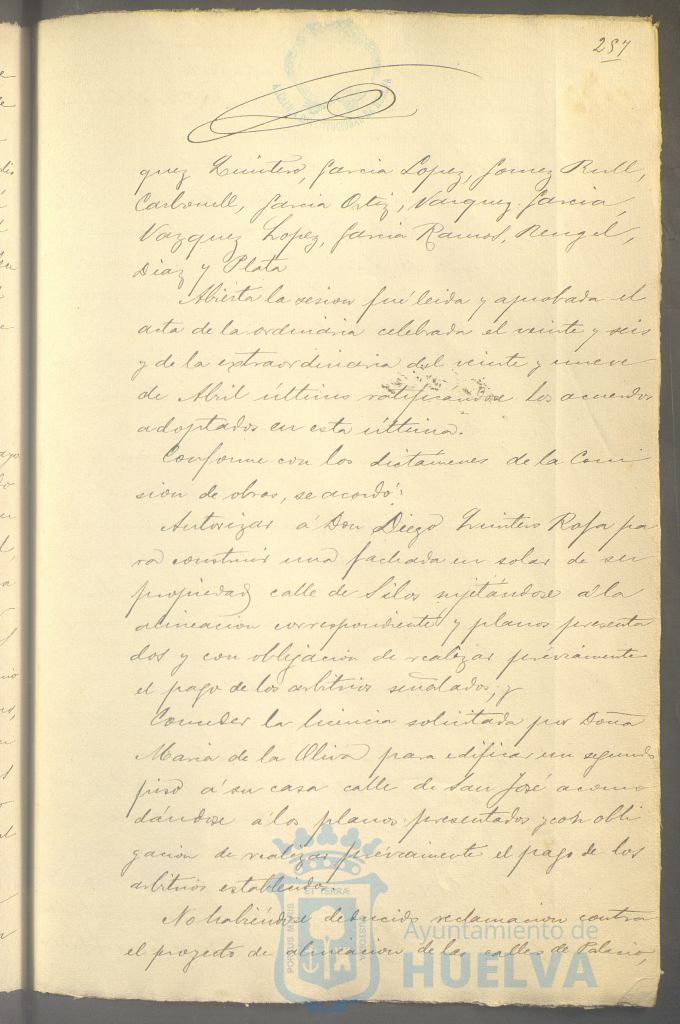 257
quez Quintero, Garcia Lopez, Gomez Rull,
Carbonell, Garcia Ortiz, Vazquez Garcia,
Vazquez Lopez, Garcia Ramos, Rengel,
Diaz y Plata
Abierta la sesion fué leida y aprobada el
acta de la ordinaria celebrada el veinte y seis
y de la extraordinaria del veinte y nueve
de Abril último ratificandose los acuerdos
adoptados en esta última.
Conforme con los dictámenes de la Comi
sion de obras, se acordó:
Autorizar á Don Diego Quintero Rofa pa
ra construir una fachada en solar de su
propiedad calle de Silos sujetándose á la
alineacion correspondiente y planos presenta
dos y con obligacion de realizar préviamente
el pago de los arbitrios señalados, y
Conceder la licencia solicitada por Doña
Maria de la Oliva para edificar un segundo
piso á su casa calle de San José acomo
dándose á los planos presentados y con obli
gacion de realizar préviamente el pago de los
arbitrios establecidos.
No habiéndose deducido reclamacion contra
el proyecto de alineacion de las calles de Palacio,
Ayuntamiento de
HUELVA